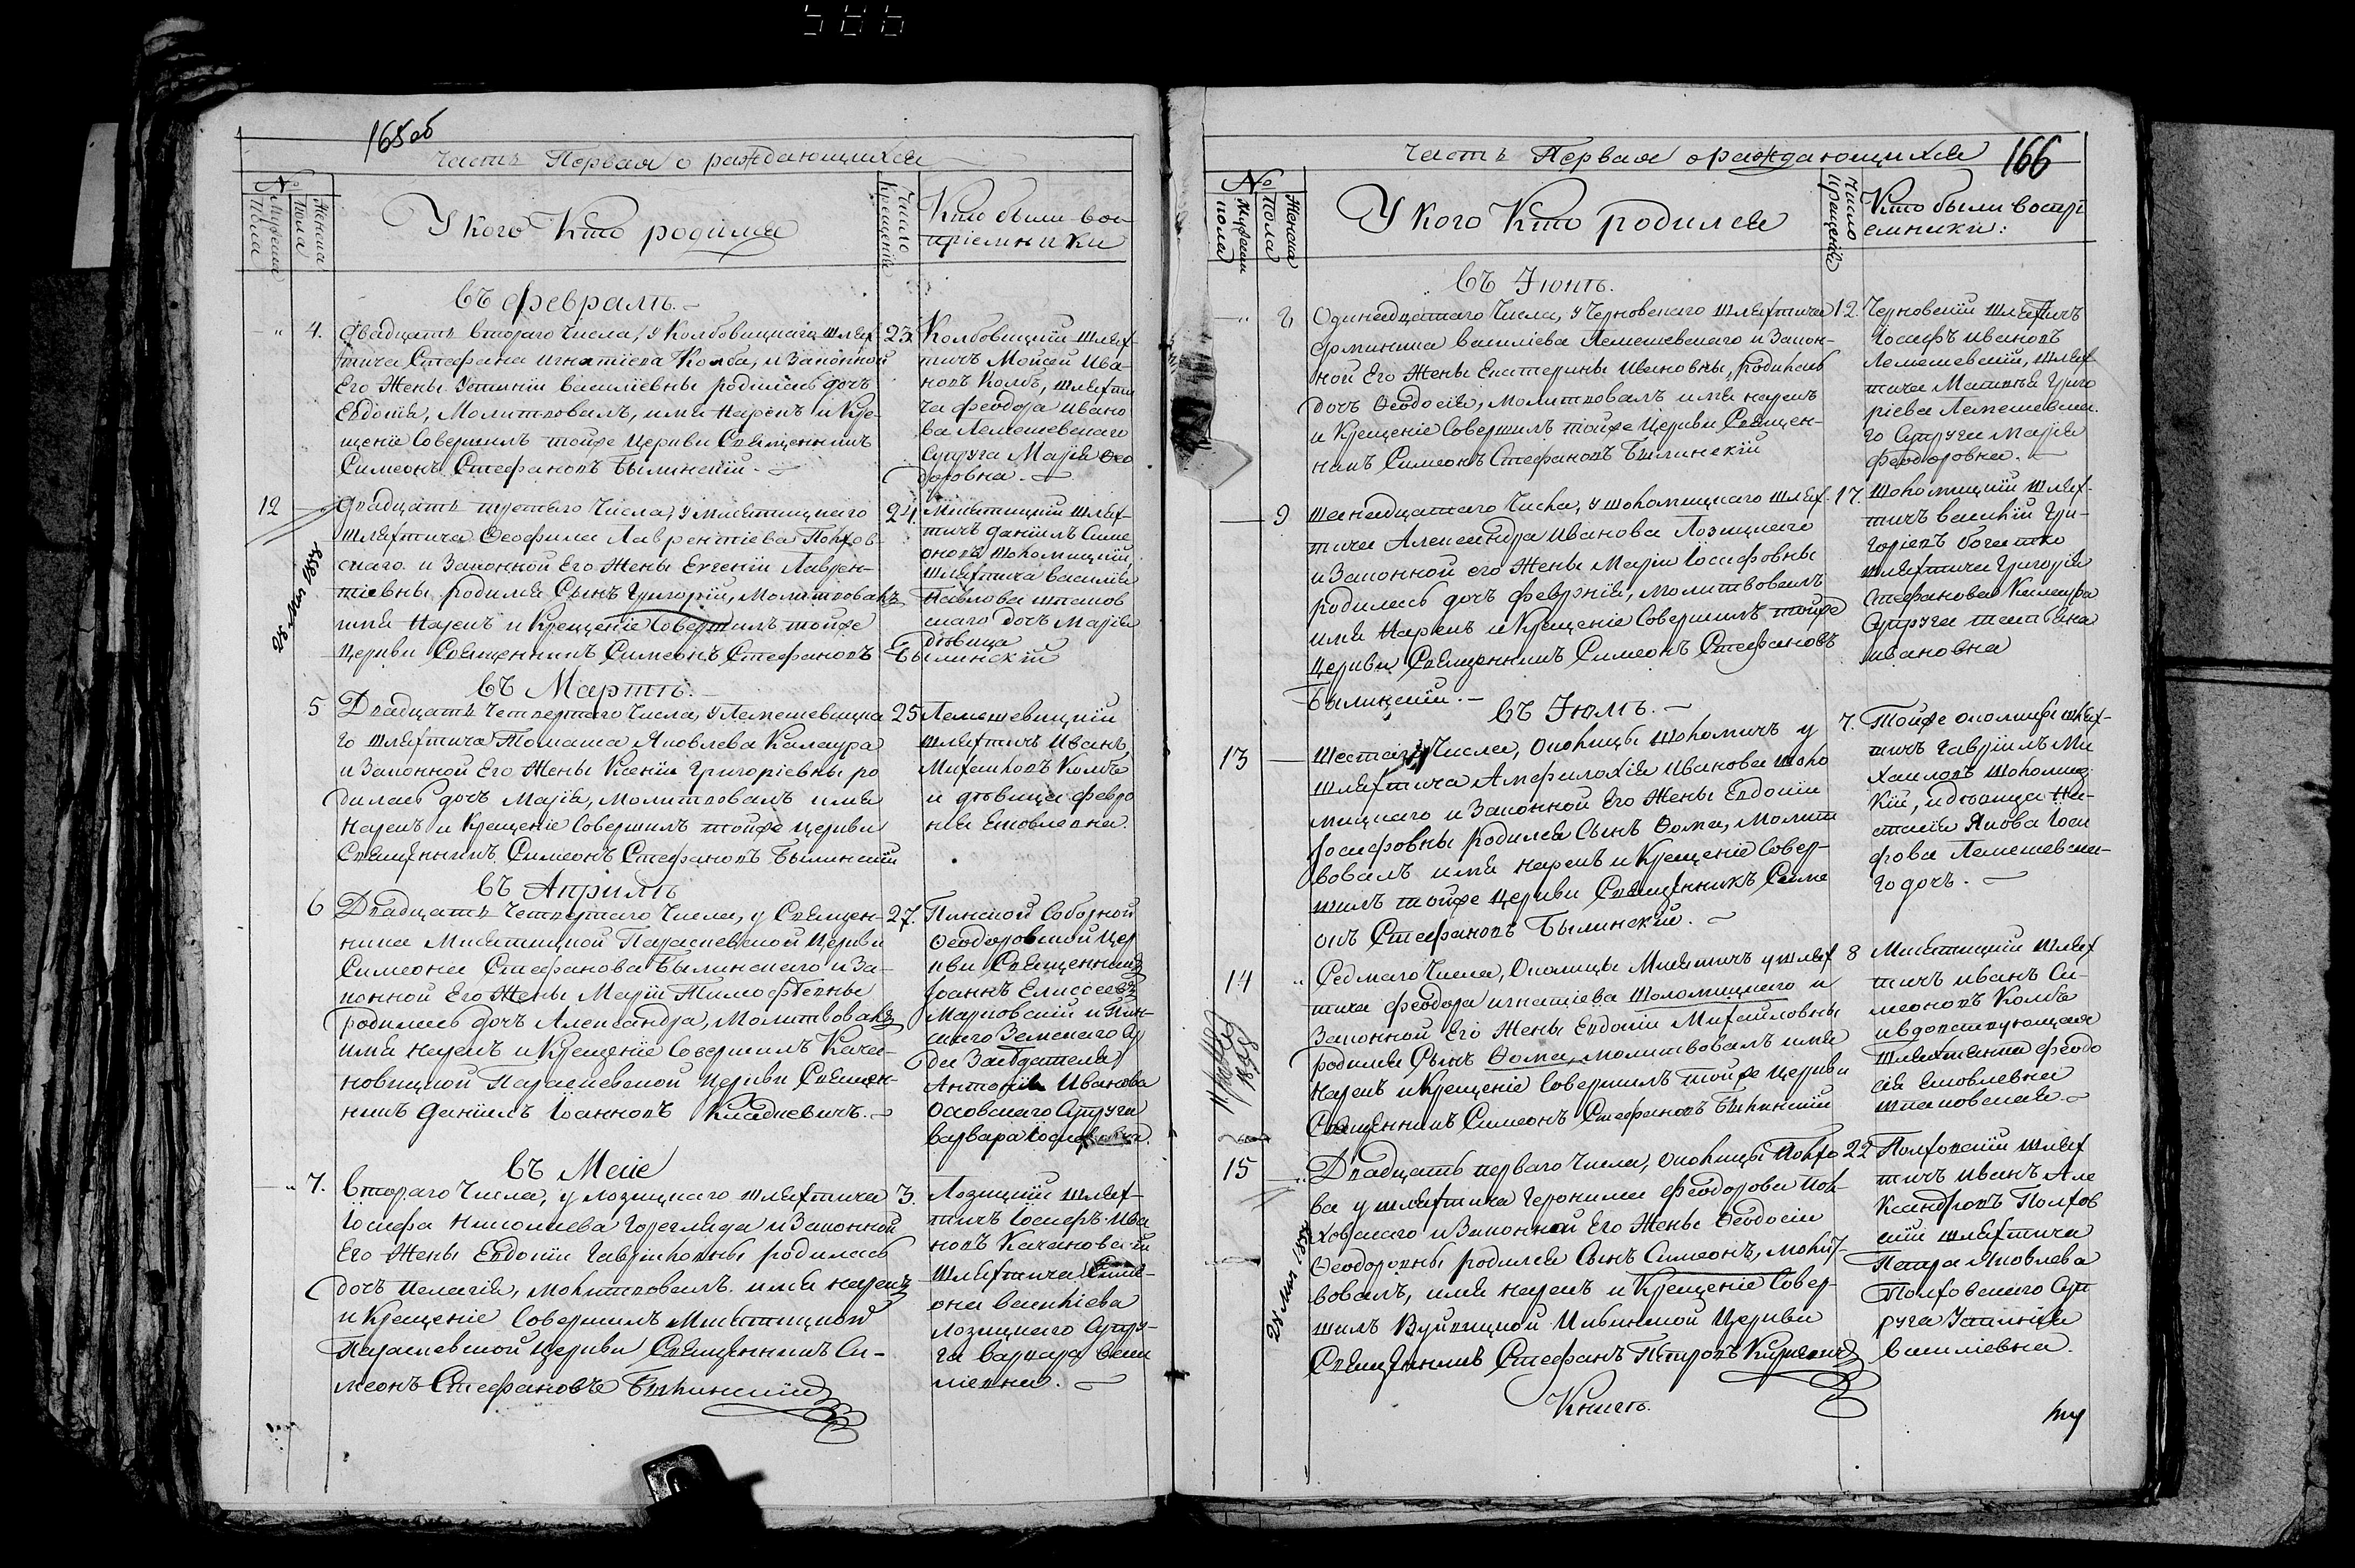 586
165об
Часть Первая о раждающихся
№
Мужеска пола
Женска пола
У кого Кто родился
Число крещенія
Кто были вос-
пріемники
Въ Февралѣ.
4.
Двадцать втораго Числа, у Колбовицкаго шлях-
тича Стефана Игнатіева Колба, и Законной
Его Жены Устиніи Василіевны родилась дочь
Евдокія, Молитвовалъ, имя Нарекъ и Кре-
щеніе Совершилъ тойже Церкви Священникъ
Симеонъ Стефановъ Былинскій.
23.
Колбовицкій шлях-
тичъ Мойсей Ива-
новъ Колбъ, шляхти
ча Феодора Ивано
ва Лемешевскаго
Супруга Марія Ѳео
доровна.
12
28 Мая 1858
Двадцать третьяго Числа, у Мисятицкаго
шляхтича Ѳеофила Лаврентіева Полхов-
скаго и Законной Его Жены Евгеніи Лаврен-
тіевны родился Сынъ Григорій, Молитвовалъ
имя Нарекъ и Крещеніе Совершилъ тойже
Церкви Священникъ Симеонъ Стефановъ Былинскій
24.
Мисятицкій шлях-
тичъ Даніилъ Симе
оновъ Шоломицкій,
шляхтича Василія
Павлова Шпаков
скаго дочь Марія
дѣвица
Въ Мартѣ.
5
Двадцать Четвертаго Числа, у Лемешевицка
го шляхтича Томаша Яковлева Калаура
и Законной Его Жены Ксеніи Григоріевны ро
дилась дочь Марія, Молитвовалъ имя
Нарекъ и Крещеніе Совершилъ тойже Церкви
Священникъ Симеонъ Стефановъ Былинскій
25
Лемешевицкій
шляхтичъ Иванъ
Михайловъ Колбъ
и дѣвица Февро
нія Яковлевна.
Въ Априлѣ
6
Двадцать Четвертаго Числа, у Священ-
ника Мисятицкой Параскевской Церкви
Симеона Стефанова Былинскаго и За-
конной Его Жены Маріи Тимофѣевны
родилась дочь Александра, Молитвовалъ
имя нарекъ и Крещеніе Совершилъ Кача-
новицкой Параскевской Церкви Священ-
никъ Даніилъ Іоанновъ Кладкевичъ.
27.
Пинской Соборной
Ѳеодоровской Цер
кви Священникъ
Іоаннъ Елисеевъ
Марковскій и Пин-
скаго Земскаго Су
да Засѣдателя
Антонія Иванова
Осовскаго Супруга
Варвара Іосифовна.
Въ Маіе
7.
Втораго Числа, у Лозицкаго шляхтича
Іосифа Николаева Горегляда и Законной
Его Жены Евдокіи Гавриловны родилась
дочь Пелагія, Молитвовалъ имя нарекъ
и Крещеніе Совершилъ Мисятицкой
Параскевской Церкви Священникъ Си-
меонъ Стефановъ Былинскій
3.
Лозицкій шлях-
тичъ Іосифъ Ива
новъ Качановскій
шляхтича Симе-
она Василіева
Лозицкаго Супру-
га Варвара Васи
ліевна.
166
Часть Первая о раждающихся
№
Мужеска пола
Женска пола
У кого Кто родился
Число крещенія
Кто были воспрі
емники:
Въ Іюнѣ.
8
Одинадцатаго Числа, у Черновскаго шляхтича
Ерминина Василіева Лемешевскаго и Закон-
ной Его Жены Екатерины Ивановны, родилась
дочь Ѳеодосія, молитвовалъ имя нарекъ
и Крещеніе Совершилъ тойже Церкви Священ-
никъ Симеонъ Стефановъ Былинскій
12.
Черновскій шляхтичъ
Іосифъ Ивановъ
Лемешевскій, шлях
тича Матвѣя Григо
ріева Лемешевска
го Супруга Марія
Феодоровна.
9
Шестнадцатаго Числа, у Шоломицкаго шлях-
тича Александра Иванова Лозицкаго
и Законной его Жены Маріи Іосифовны
родилась дочь Февронія, молитвовалъ
имя Нарекъ и Крещеніе Совершилъ тойже
Церкви Священникъ Симеонъ Стефановъ
Былинскій.
17.
Шоломицкій шлях-
тичъ Василій Гри-
горіевъ Богатко
шляхтича Григорія
Стефанова Калаура
Супруга Татьяна
Ивановна
Въ Іюлѣ.
13
Шестаго Числа, Околицы Шоломичъ у
шляхтича Амфилохія Иванова Шоло
мицкаго и Законной Его Жены Евдокіи
Іосифовны родился Сынъ Ѳома, Молит
вовалъ имя нарекъ и Крещеніе Совер-
шилъ тойже Церкви Священникъ Симе
онъ Стефановъ Былинскій.
7.
Тойже околицы шлях-
тичъ Гавріилъ Ми
хаиловъ Шоломиц
кій, и дѣвица На-
стасія Якова Іоси
фова Лемешевска-
го дочь.
14
1858
Седмаго Числа, Околицы Мисятичъ у шлях
тича Феодора Игнатіева Шоломицкаго и
Законной Его Жены Евдокіи Михайловны
родился Сынъ Ѳома, молитвовалъ имя
Нарекъ и Крещеніе Совершилъ тойже Церкви
Священникъ Симеонъ Стефановъ Былинскій
8
Мисятицкій шлях
тичъ Иванъ Си-
меоновъ Колбъ
и вдовствующая
шляхтянка Феодо
сія Яковлевна
Шпаковская.
15
28 Мая 1858
Двадцать перваго Числа, Околицы Полхо
ва у шляхтича Героніма Феодорова Пол-
ховскаго и Законной Его Жены Ѳеодосіи
Ѳеодоровны родился Сынъ Симеонъ, молит-
вовалъ, имя нарекъ и Крещеніе Совер-
шилъ Вуйвицкой Ильинской Церкви
Священникъ Стефанъ Петровъ
22
Полховскій шлях
тичъ Иванъ Але
ксандровъ Полхов
скій шляхтича
Петра Яковлева
Полховскаго Суп
руга Устинія
Василіевна.